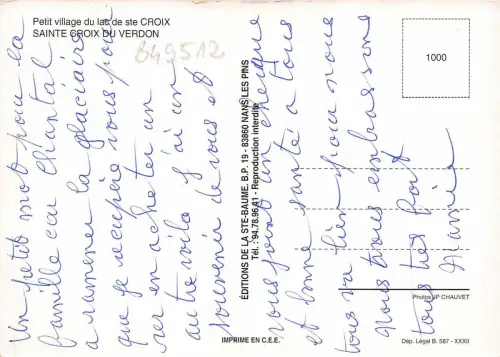 Petit village du lac de ste CROIX
SAINTE CROIX DU VERDON
849512
1000
Un petit mot pour la
famille car Chantal
a ramener la glaciaire
que je récupère vous pour
en acheter un
au tre voilà j'ai un
souvenir de vous et
vous joint un cheque
et bonne santé a tous
tous va bien pour nous
Nous vous embrassons
tous très fort
ÉDITIONS DE LA STE-BAUME. B.P. 19 - 83860 NANS LES PINS
Tél. : 94.78.96.41 - Reproduction interdite
Photos JP CHAUVET
IMPRIME EN C.E.E.
Dép. Légal B. 587 - XXXII